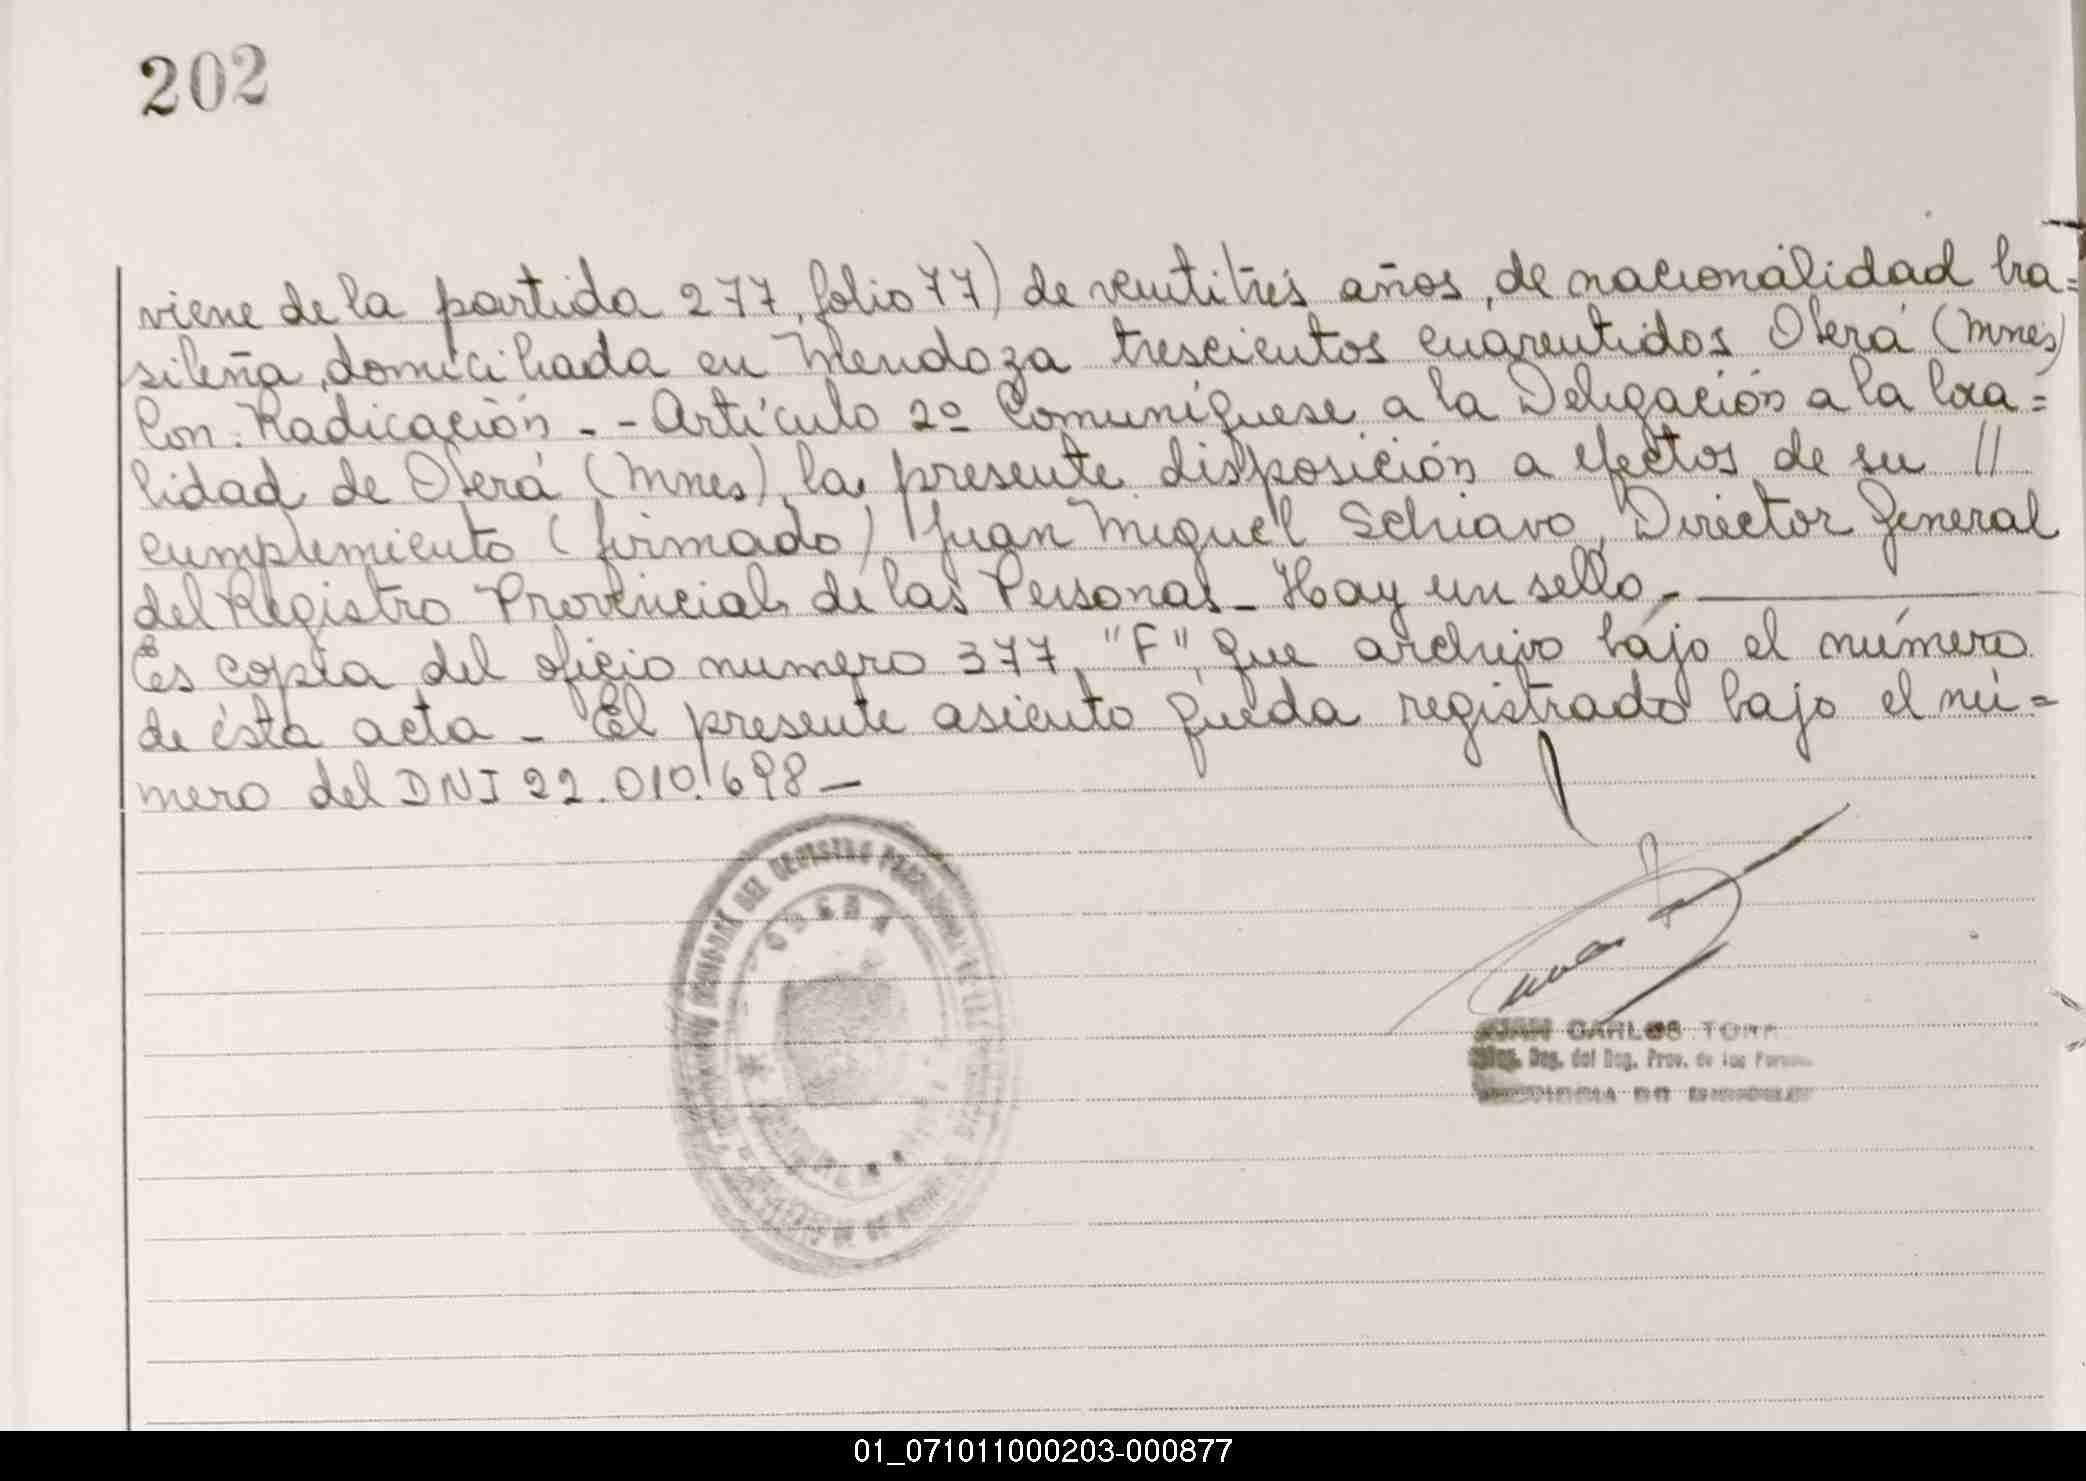 202
viene de la partida 277, folio 77) de ventitrés años, de nacionalidad bra=
sileña, domiciliada en Mendoza trescientos cuarentidos Oberá (Mnes)
Con: Radicación - - Artículo 2º Comuníquese a la Delegación a la loca=
lidad de Oberá (Mnes), la presente disposición a efectos de su //
cumplimiento (firmado) Juan Miguel Schiavo, Director General
del Registro Provincial de las Personas - Hay un sello -
Es copia del oficio numero 377, "F", que archivo bajo el número
de ésta acta - El presente asiento queda registrado bajo el nú=
mero del DNI 22.010.698 -
OBERA
JUAN CARLOS TORR
Deg. del Reg. Prov. de las
01_071011000203-000877